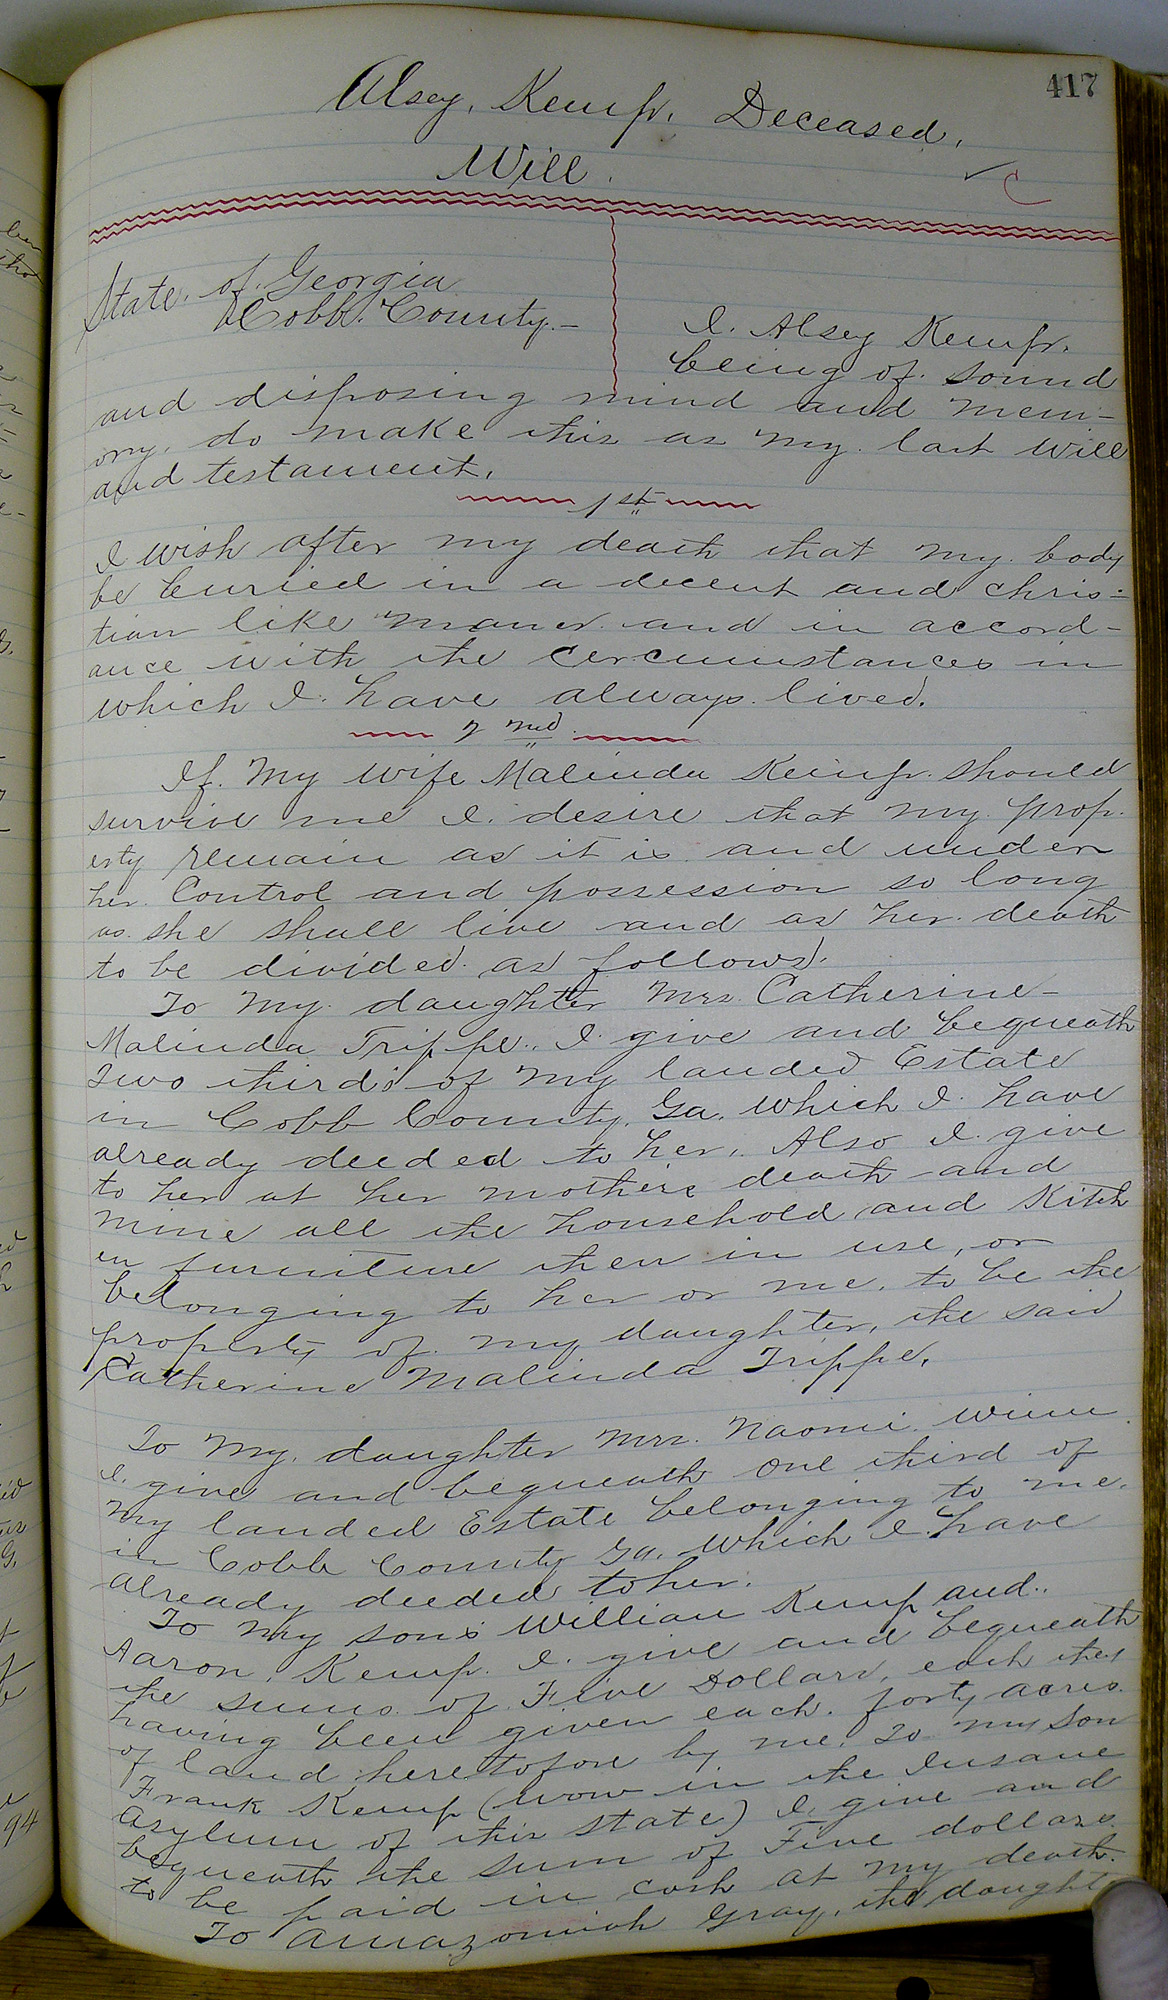 417
Alsey, Kemp, Deceased,
Will.
C
State, of, Georgia
Cobb. County.-
I. Alsey Kemp.
being of. sound
and disposing mind and mem-
ory, do make this as my last will
and testament.
1st
I wish after my death that my body
be buried in a decent and chris-
tian like maner and in accord-
ance with the cercumstances in
which I have always lived.
2nd
If. my wife Malinda Kemp. should
survive me I. desire that my prop-
erty remain as it is and under
her. Control and possession so long
as she shall live and as her death
to be divided as follows.
To my daughter Mrs. Catherine-
Malinda Trippe.. I give and bequeath
Two third's of my landed Estate
in Cobb County, Ga, which I have
already deeded to her, Also I give
to her at her mothers death and
mine all the household and Kitch
en furniture then in use, or
belonging to her or me, to be the
property of my daughter, the said
Catherine Malinda Trippe.
To my daughter Mrs. Naomi Winn
I. give and bequeath one third of
my landed Estate belonging to me.
in Cobb County Ga. which I have
already deeded to her.
To my son's William Kemp and..
Aaron Kemp. I. give and bequeath
the sums of Five Dollars, each they
having been given each. forty acres
of land heretofore by me. To my son
Frank Kemp (now in the Insane
Asylum of this state) I. give and
bequeath the sum of Five dollars.
to be paid in cash at my death.
To Amazoniah Gray, the daught
94